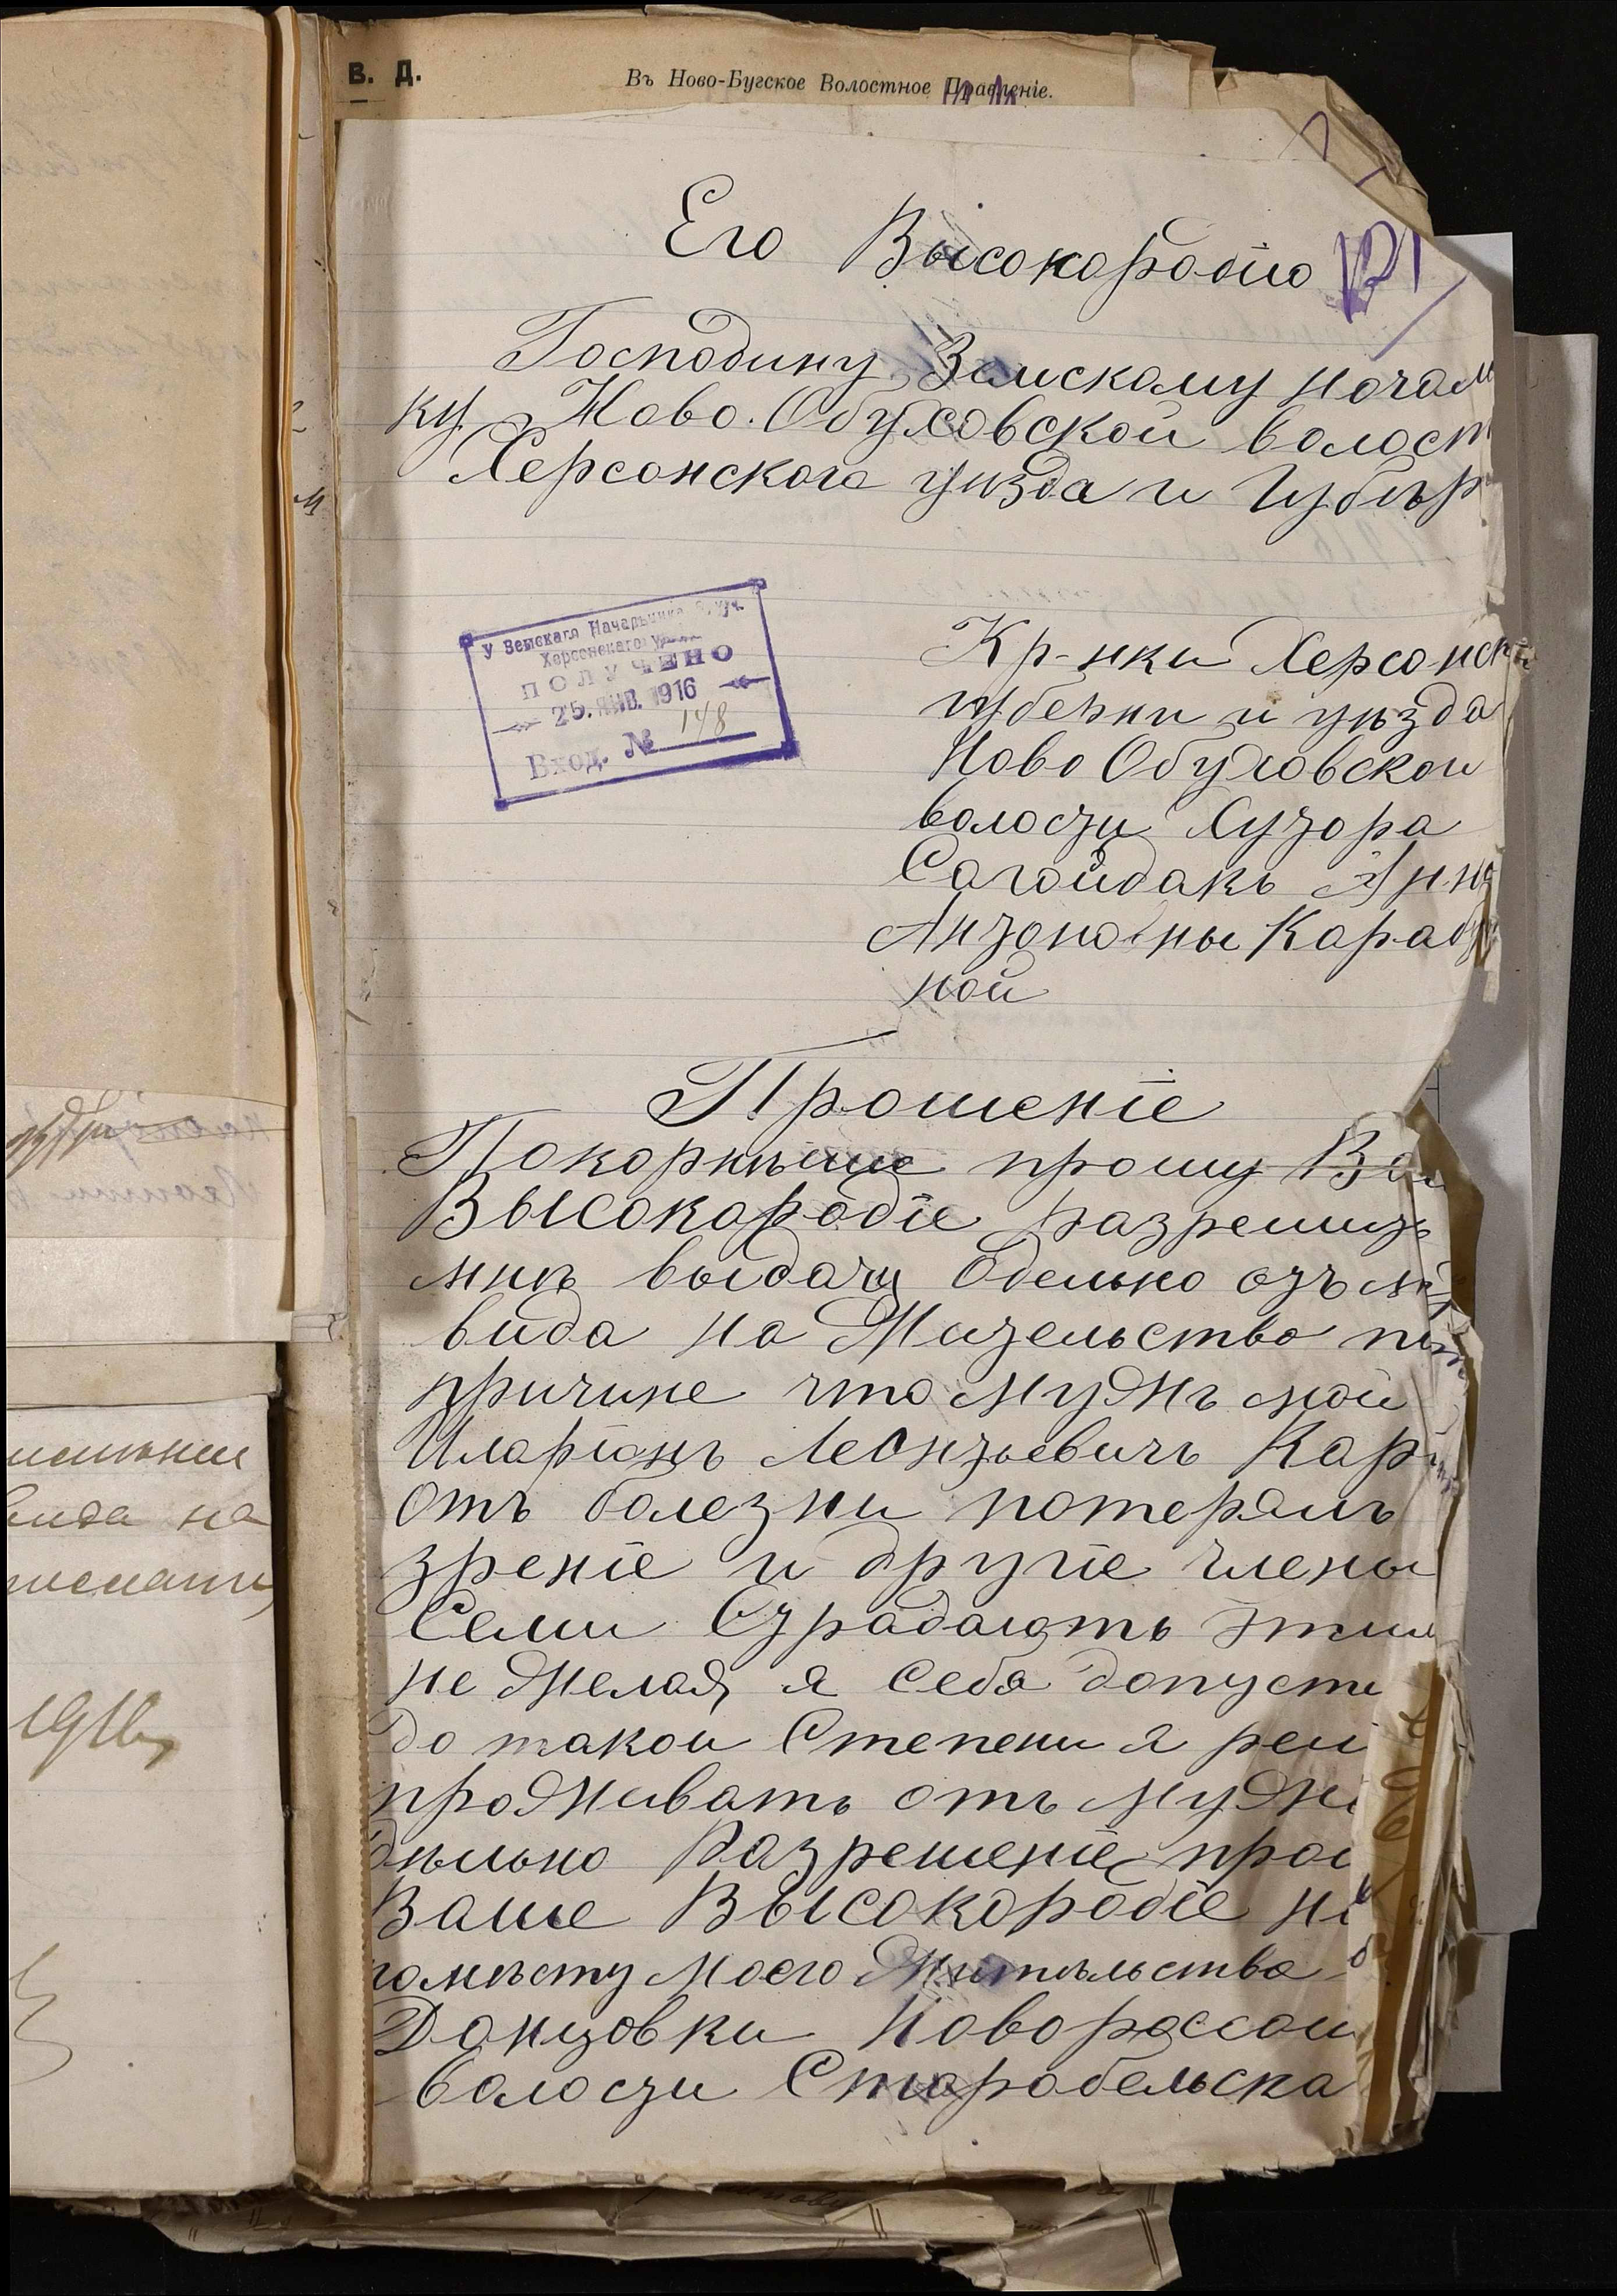 В. Д.
Въ Ново-Бугское Волостное Правленіе.
Его Высокородію
Господину Земскому Начал
ку Ново. Обуховской волост
Херсонскога уѣзда и Губѣр
У Земскаго Начальника 6. уч.
Херсонскаго уѣзда
ПОЛУЧЕНО
25. ЯНВ. 1916
Вход. № 148
Кр-нки Херсонск
губерни и уѣзда
Ново Обуховскои
волости Хутора
Согойдакъ Анн
Антоновны Караб
ной
Прошеніе
Покорнѣише прошу Ва
Высокародіе разрешить
мнѣ выдачу Одельно отъ
вида на Жительство
причине что мужъ мой
Иларіонъ Леонтьевичъ Кар
отъ болезни потерялъ
зреніе и другіе члены
Семи Страдаютъ этим
не желая я себя допусти
до такои Степени я реш
проживать отъ мужа
дѣльно Разрешеніе про
Ваше Высокородіе
помѣсту моего Жительства
Донцовки Новоросси
волости Старобельска
вида на